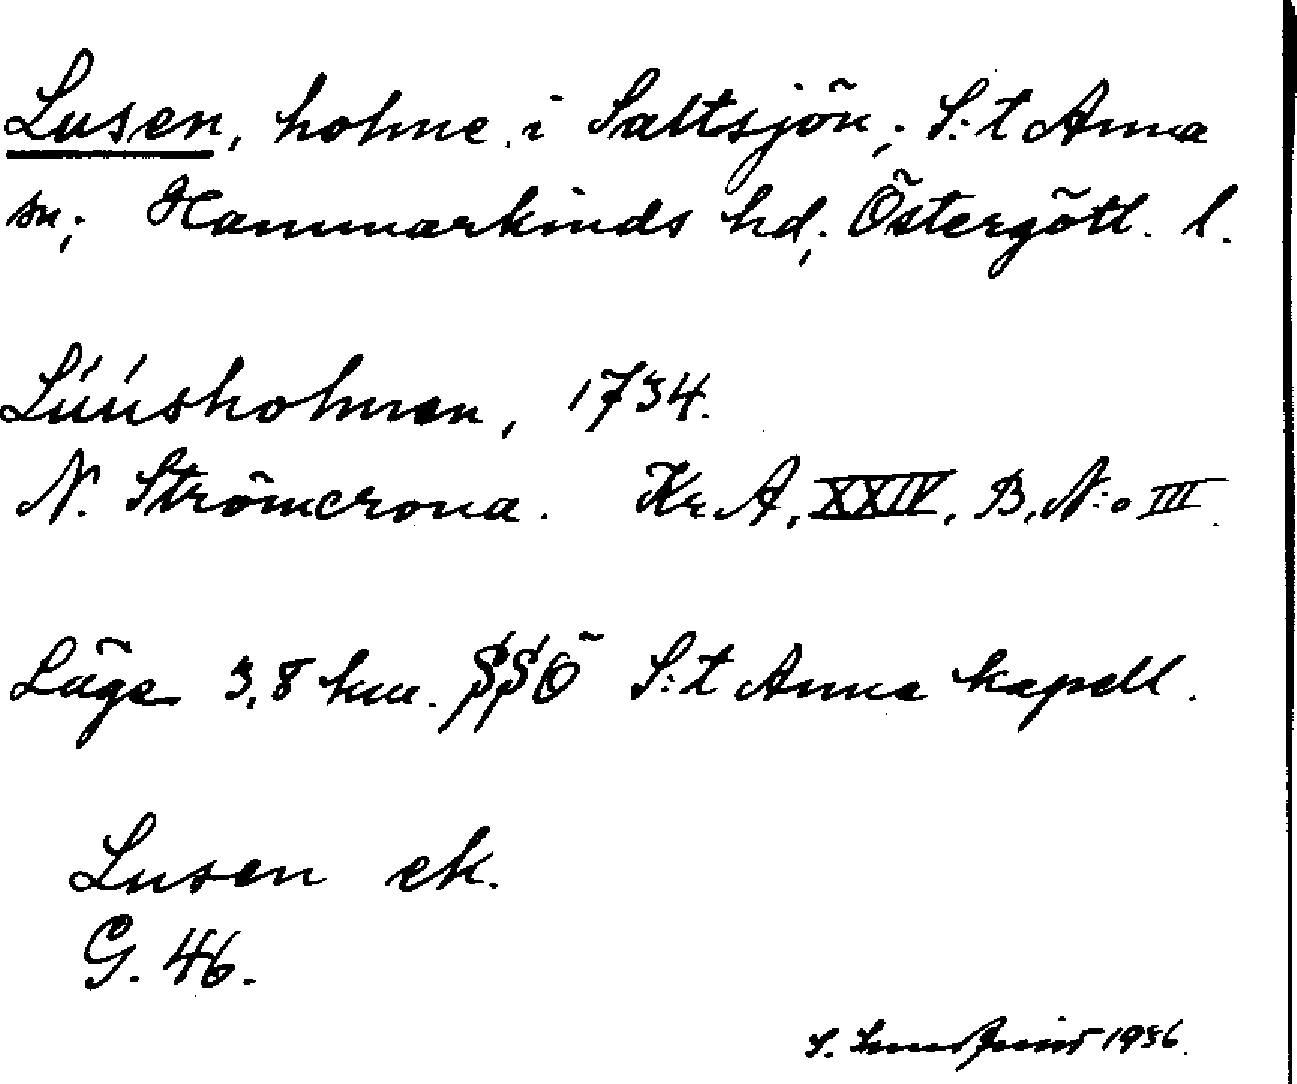 Lusen, holme i Saltsjön; S:t Anna
sn; Hammarkinds hd; Östergötl. l.
Lúúsholmen, 1734.
N. Strömcrona. Kr. A, XXIV, B, N:o III.
Läge 3,8 km. SSÖ S:t Anna kapell.
Lusen ek.
G. 46.
S. 1936.